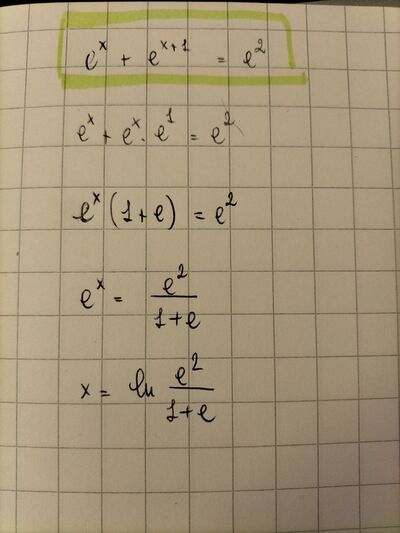 e^x + e^{x+1} = e^2
e^x + e^x · e^1 = e^2
e^x (1+e) = e^2
e^x = \frac{e^2}{1+e}
x = ln \frac{e^2}{1+e}